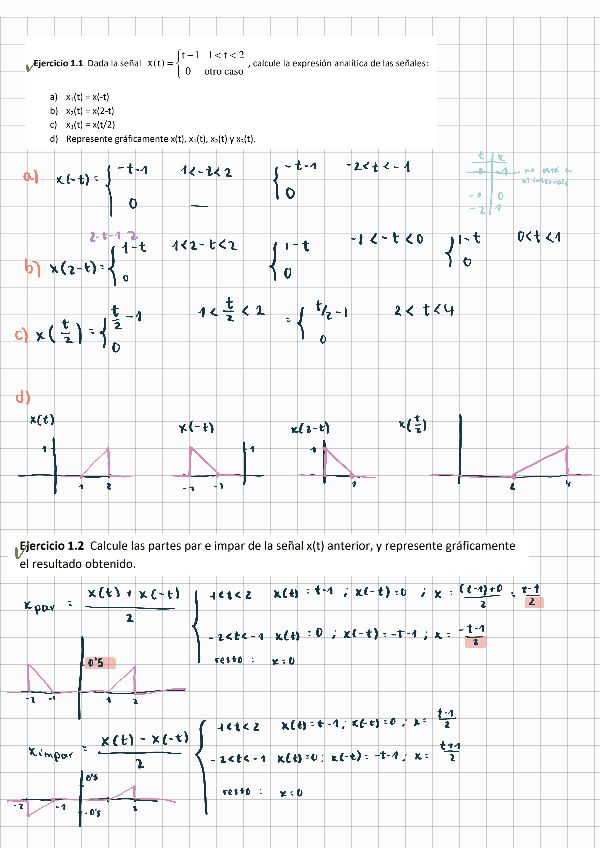 Ejercicio 1.1 Dada la señal x(t) = { t−1 1<t<2 , calcule la expresión analítica de las señales:
0 otro caso
a) x₁(t) = x(-t)
b) x₂(t) = x(2-t)
c) x₃(t) = x(t/2)
d) Represente gráficamente x(t), x₁(t), x₂(t) y x₃(t).
t x
0 -1 no está en
el intervalo
-1 0
-2 1
a) x(-t) = { -t-1 1<-t<2 { -t-1 -2<t<-1
0 — 0
2-t-1
b) x(2-t) = { 1-t 1<2-t<2 { 1-t -1<-t<0 { 1-t 0<t<1
0 0 0
c) x(t/2) = { t/2 -1 1< t/2 <2 = { t/2-1 2<t<4
0 0
d)
x(t) x(-t) x(2-t) x(t/2)
1 1 1
1 2 -2 -1 1 2 4
Ejercicio 1.2 Calcule las partes par e impar de la señal x(t) anterior, y represente gráficamente
el resultado obtenido.
x par = x(t) + x(-t) / 2 { 1<t<2 x(t) = t-1 ; x(-t) = 0 ; x = (t-1)+0 / 2 = t-1 / 2
-2<t<-1 x(t) = 0 ; x(-t) = -t-1 ; x = -t-1 / 2
resto : x=0
0'5
-2 -1 1 2
x impar = x(t) - x(-t) / 2 { 1<t<2 x(t) = t-1 ; x(-t) = 0 ; x = t-1 / 2
-2<t<-1 x(t) = 0 ; x(-t) = -t-1 ; x = t+1 / 2
resto : x=0
0'5
-2 -1 2
-0'5